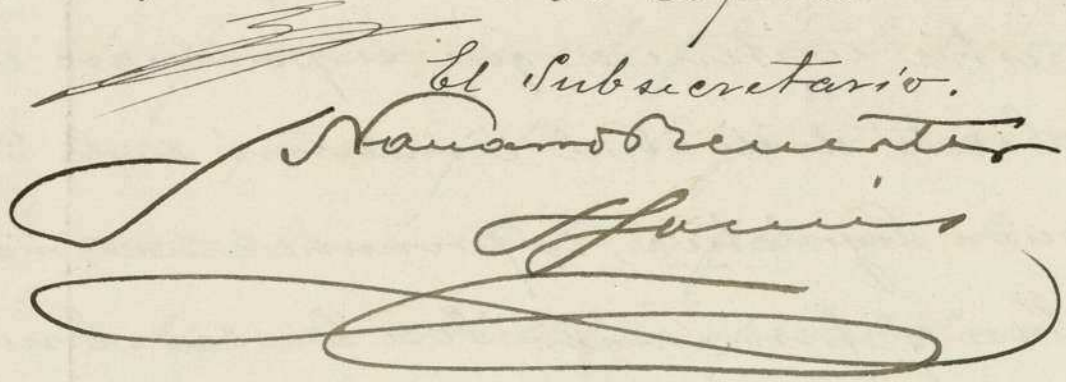 El Subsecretario.
J Navarro Reverter
Gomis